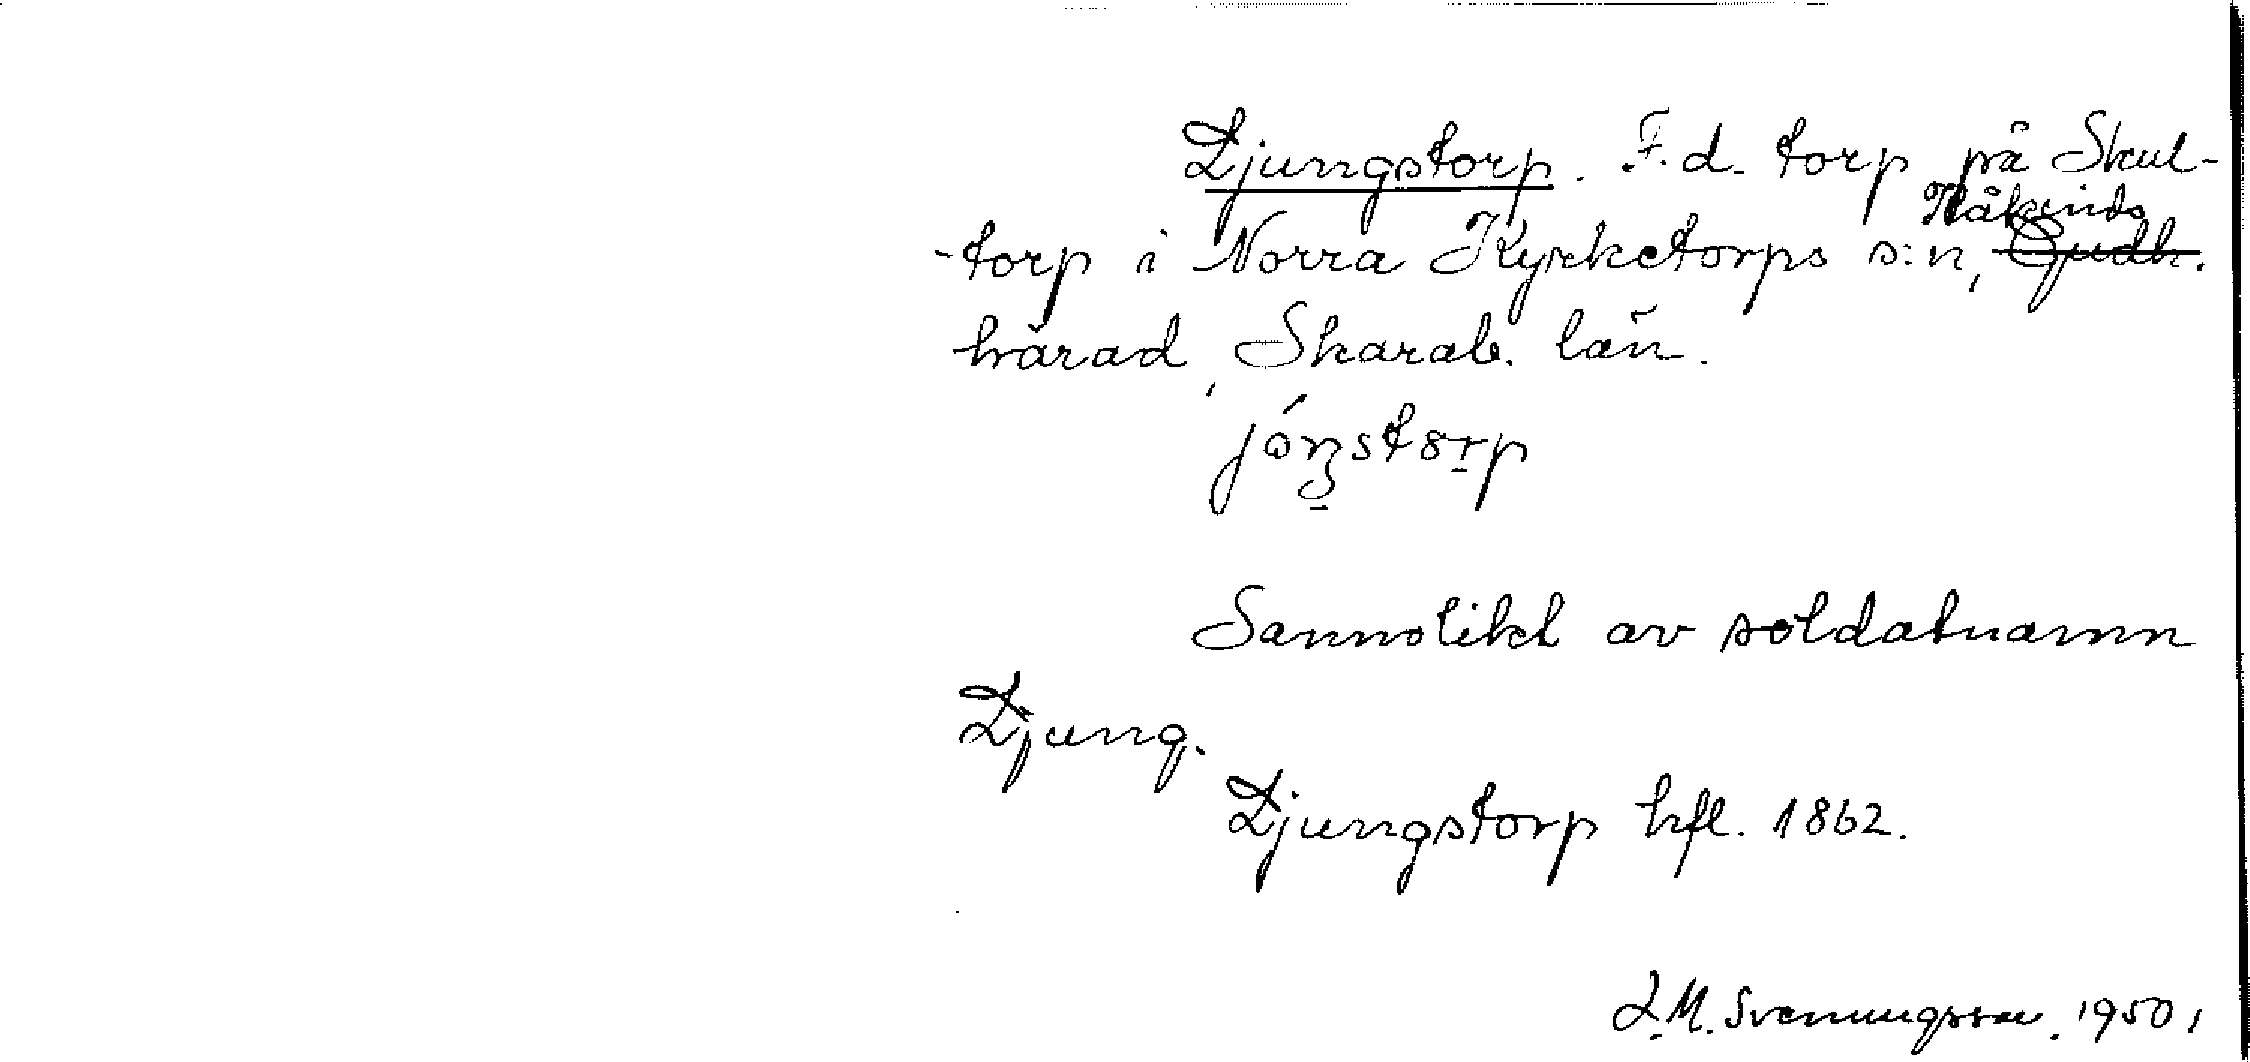 Ljungstorp. F. d. torp på Skul-
-torp i Norra Kyrketorps s:n, Kåkinds ~~Gudh.~~
härad, Skarab. län.
Sannolikt av soldatnamn
Ljung.
Ljungstorp hfl. 1862.
L. M. Svenungsson. 1950,